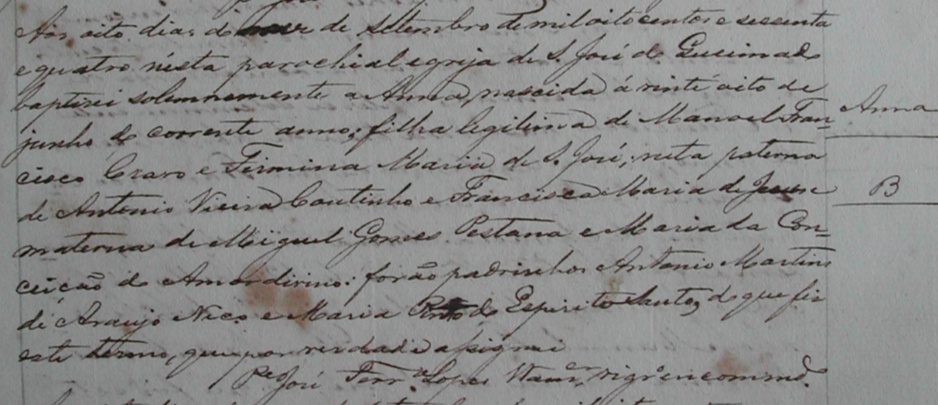 Aos oito dias do mez de Setembro de mil oito centos e secenta
e quatro nesta parochial egreja de S. José do Queimado
baptizei solemnemente a Anna, nascida á vinte oito de
junho do corrente anno; filha legitima de Manoel Fran-
cisco Cravo e Firmina Maria de S. José; neta paterna
de Antonio Vieira Coutinho e Francisca Maria de Jesus e
materna de Miguel Gomes Pestana e Maria da Con-
ceição do Amor divino: forão padrinhos Antonio Martins
de Araujo e Maria do Espirito Santo, do que fiz
este termo, que por verdade assignei
Pe José Ferra Lopes encommdo.
Anna
B